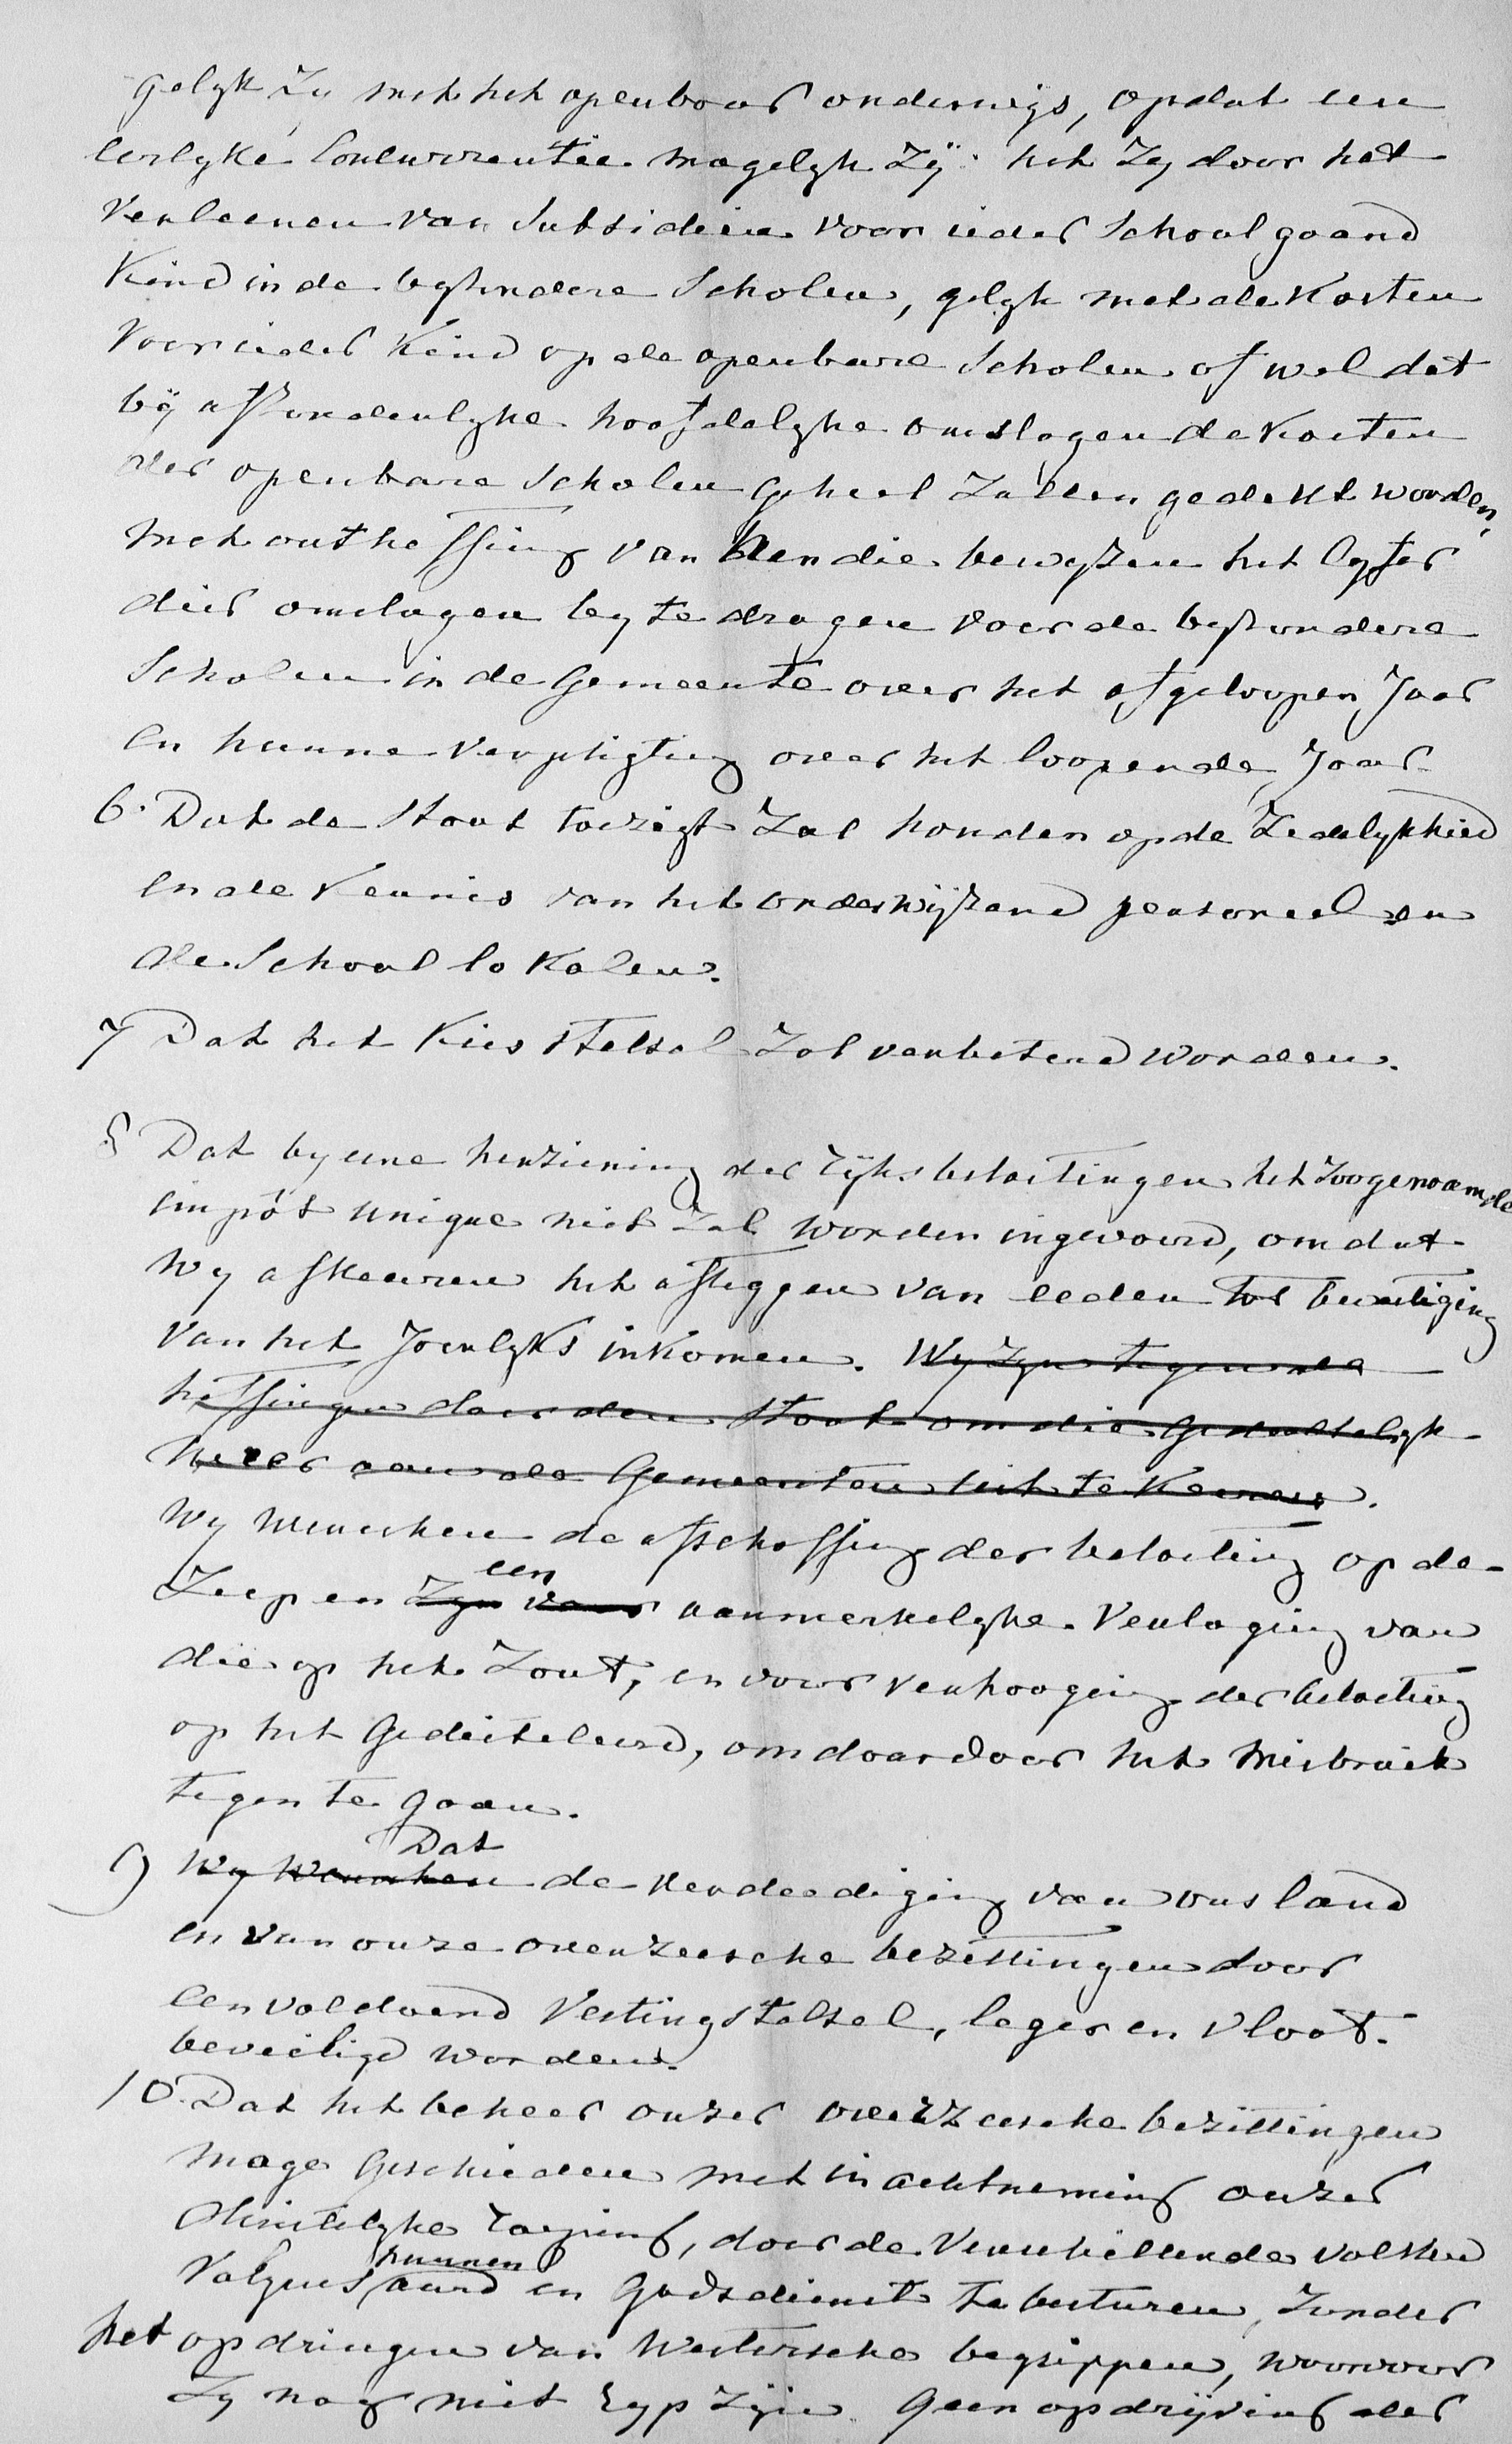 gelyk Zy met het openbaar onderwijs, opdat een
eerlyke Concurrentie mogelyk Zÿ. het Zy door het
Verleenen van Subsidien voor ieder School gaand
Kind in de byzondere Scholen, gelyk met de Kosten
Voor ieder Kind op de openbare Scholen of wel dat
bÿ afzonderlyke hoofdelyke omslagen de Kosten
der openbare Scholen geheel Zullen gedekt worden,
met ontheffing van hen die bewyzen het Cyfer
dier omslagen by te dragen voor de byzondere
Scholen in de Gemeente over het afgeloopen Jaar
en hunne Verpligting over het loopende Jaar
6. Dat de Staat toezigt Zal houden op de Zedelykheid
en de Kennis van het onderwÿzend personeel en
de School lokalen.
7 Dat het Kies Stelsel Zal verbeterd worden.
8 Dat by eene herziening der rÿks belastingen het Zoogenaamde
impôt unique niet Zal worden ingevoerd, omdat
Wy afkeuren het afleggen van eeden tot bevestiging
Van het Jaarlyks inkomen. Wy Zyn tegen de
heffingen door den Staat om die gedeeltelyk
weer aan de Gemeenten uit te Keeren.
Wy wenschen de afschaffing der belasting op de
Zeep en Zyn voor een aanmerkelyke Verlaging van
die op het Zout, en voor verhooging der belasting
op het Gedisteleerd, om daardoor het misbruik
tegen te gaan.
9 Wy Wenschen Dat de verdeediging van ons land
en van onze overzeesche bezittingen door
een voldoend Vestingstelsel, leger en Vloot
beveiligd worden.
10. Dat het beheer onzer overzeesche bezittingen
moge Geschieden met inachtneming onzer
Christelyke roeping, door de Verschillende volken
Volgens hunnen aard en Godsdienst te besturen, Zonder
het opdringen van Westersche begrippen, waarvoor
Zy nog niet ryp Zÿn. Geen opdrÿving der